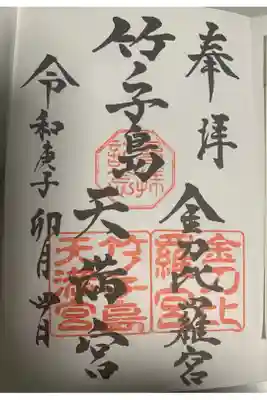 奉拝
金比羅宮
竹ノ子島
天満宮
令和庚子卯月四日
金刀比羅宮
竹ノ子島天満宮